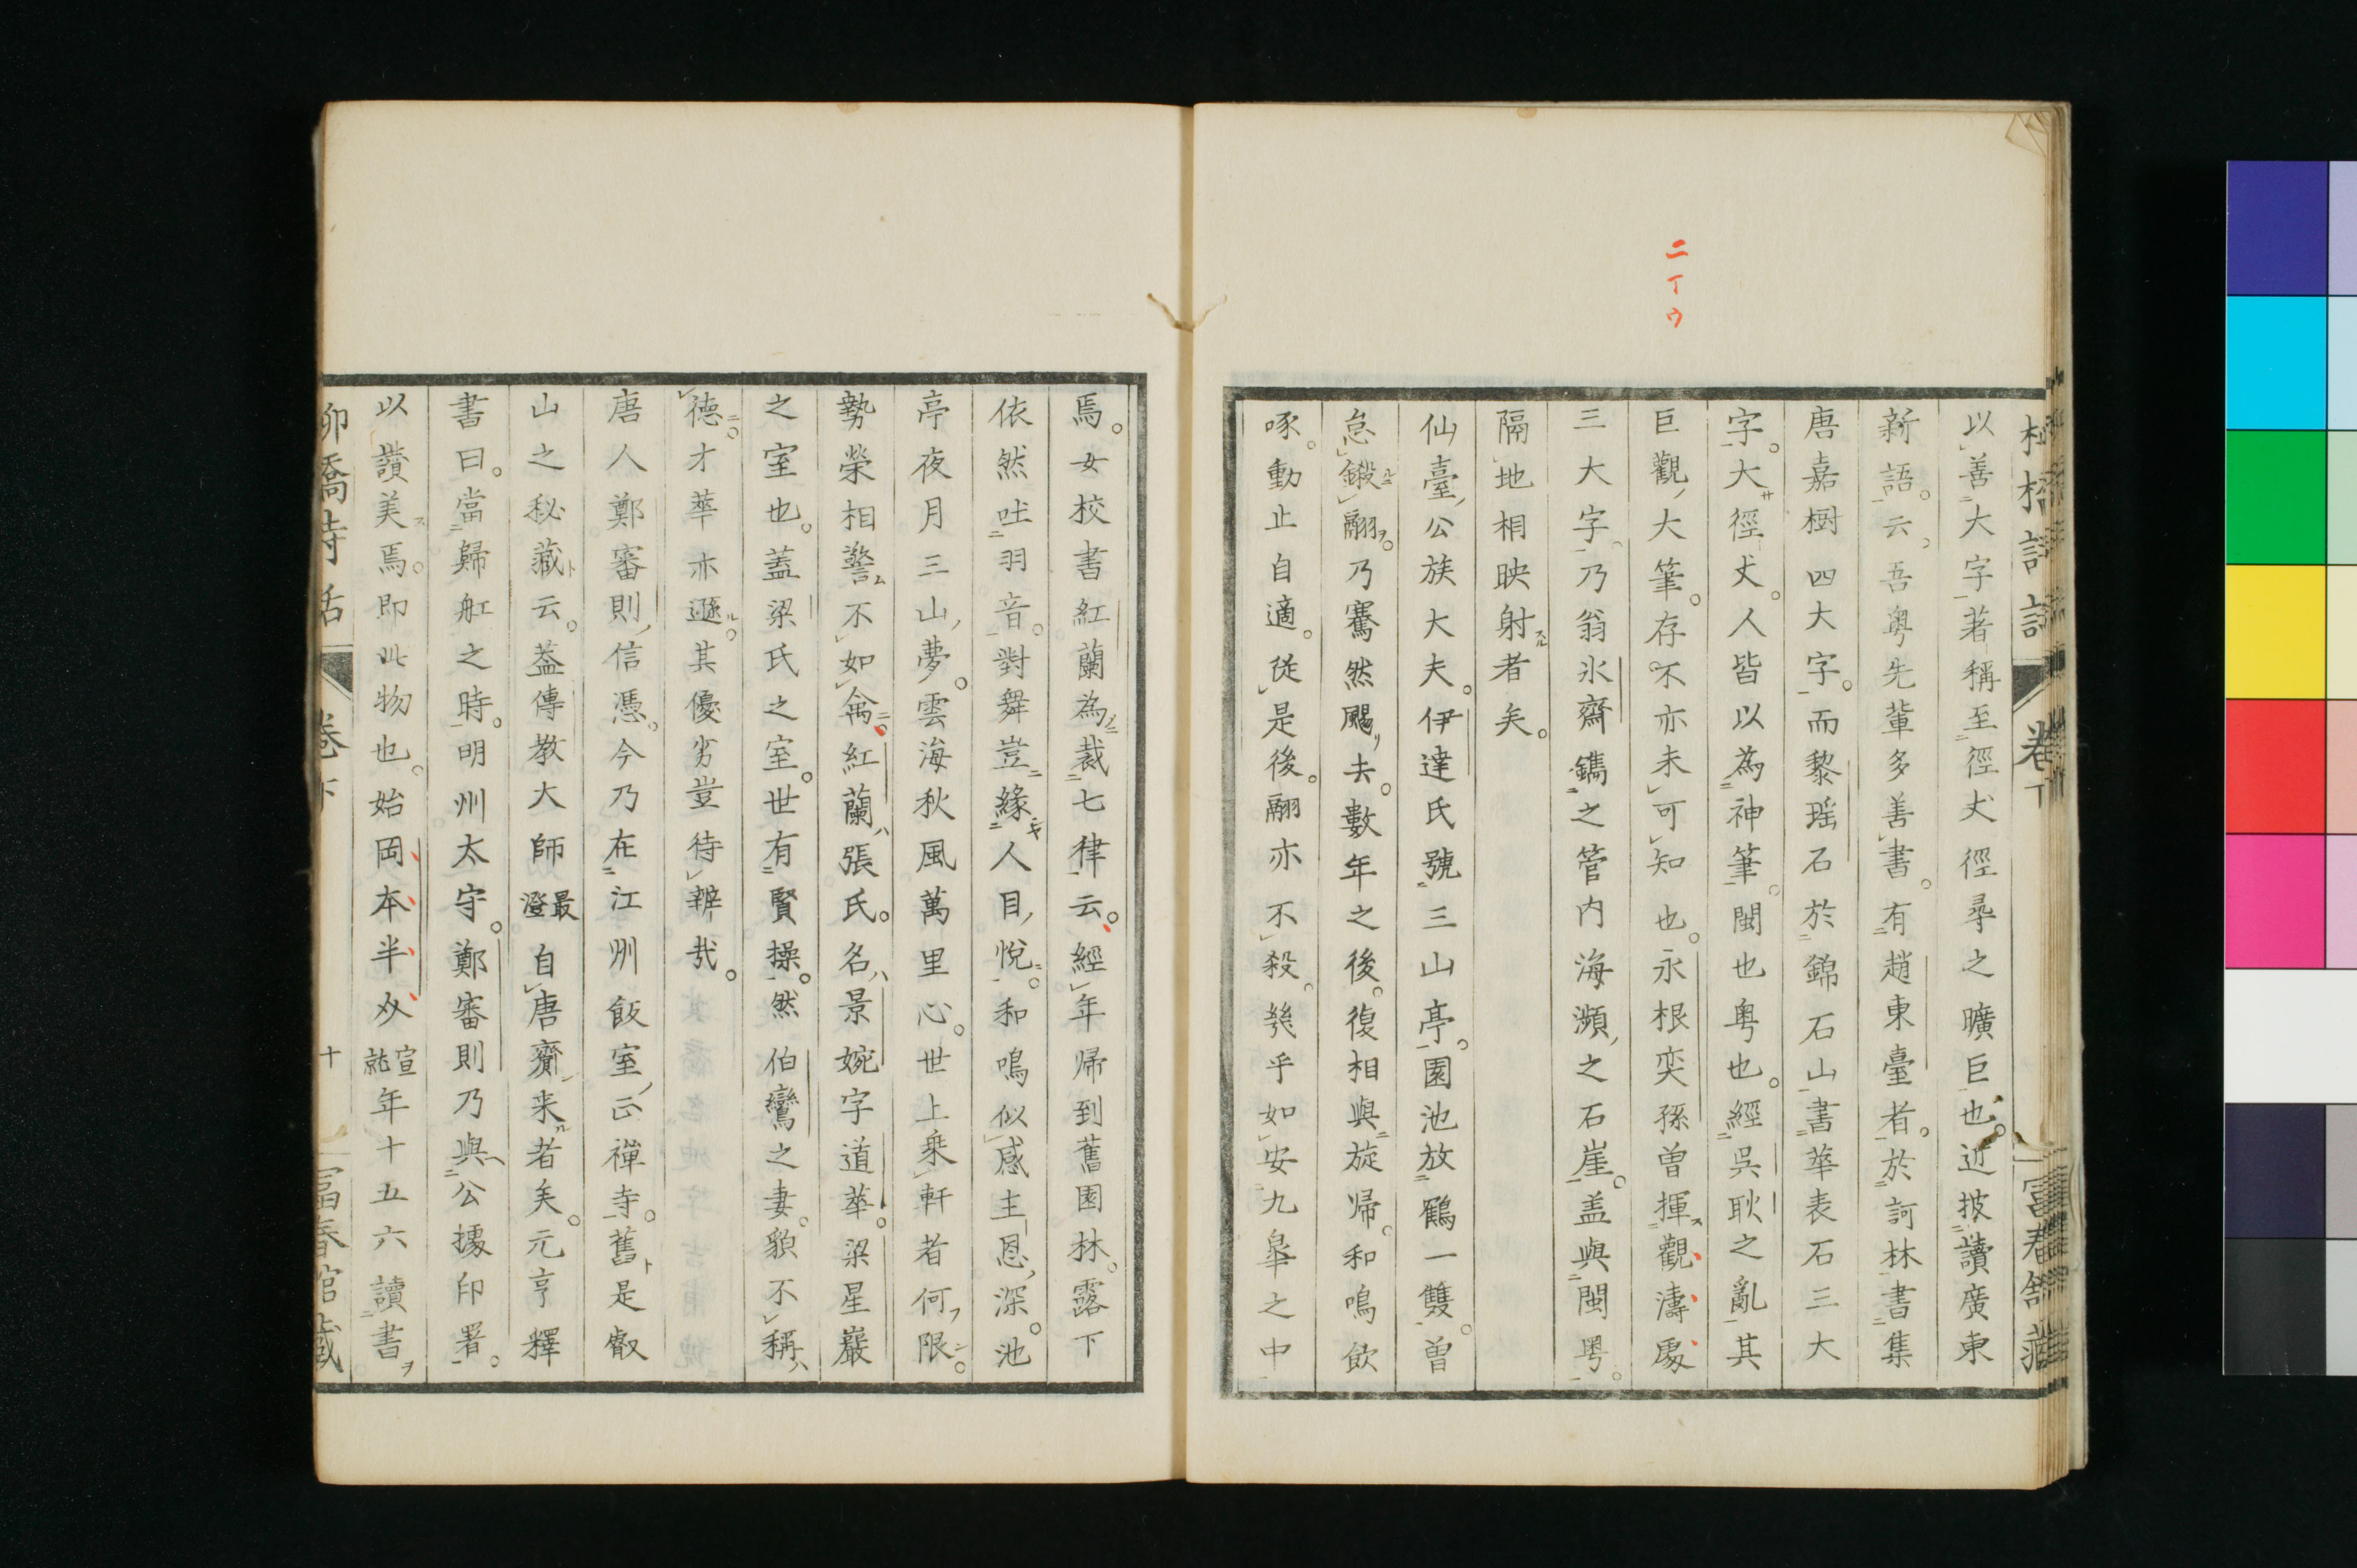 二丁ウ
以善大字著稱至徑丈徑尋之曠巨也近披讀廣東
新語云吾粤先輩多善書有趙東臺者於訶林書集
唐嘉樹四大字而黎瑶石於錦石山書華表石三大
字大徑丈人皆以為神筆閩也粤也經吳耿之亂其
巨觀大筆存不亦未可知也永根奕孫曾揮觀濤處
三大字乃翁氷齋鐫之管内海瀕之石崖盖與閩粤
隔地相映射者矣
仙臺公族大夫伊達氏號三山亭園池放鶴一雙曾
怠鍛翮乃騫然颺去數年之後復相與旋帰和鳴飲
啄動止自適從是後翮亦不殺幾乎如安九皐之中
焉女校書紅蘭為裁七律云經年帰到舊園林露下
依然吐羽音對舞豈緣人目悅和鳴似感主恩深池
亭夜月三山夢雲海秋風萬里心世上乘軒者何限
勢榮相警不如禽紅蘭張氏名景婉字道華梁星巖
之室也蓋梁氏之室世有賢操然伯鸞之妻貌不稱
徳才華亦遜其優劣豈待辨哉
唐人鄭審則信憑今乃在江州飯室正禪寺舊是叡
山之秘藏云葢傳教大師最澄自唐齎来者矣元亨釋
書曰當歸舡之時明州太守鄭審則乃與公據印署
以讚美焉即此物也始岡本半刄宣就年十五六讀書
柳橋詩話 卷下 十 富春館藏